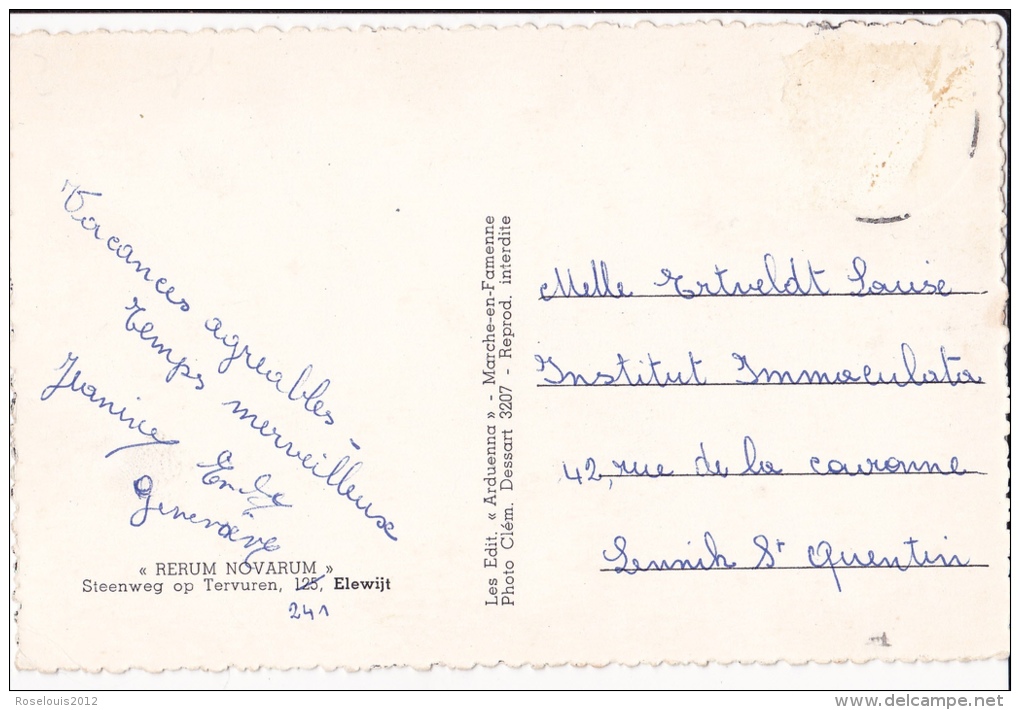 Vacances agreables -
temps merveilleux
Jeanine
Geneviève
« RERUM NOVARUM »
Steenweg op Tervuren, 125, Elewijt
241
Les Edit. « Arduenna » - Marche-en-Famenne
Photo Clém. Dessart 3207 - Reprod. interdite
Melle Ertveldt Louise
Institut Immaculata
42, rue de la couronne
Lennik St Quentin
Roselouis2012
delcampe.net